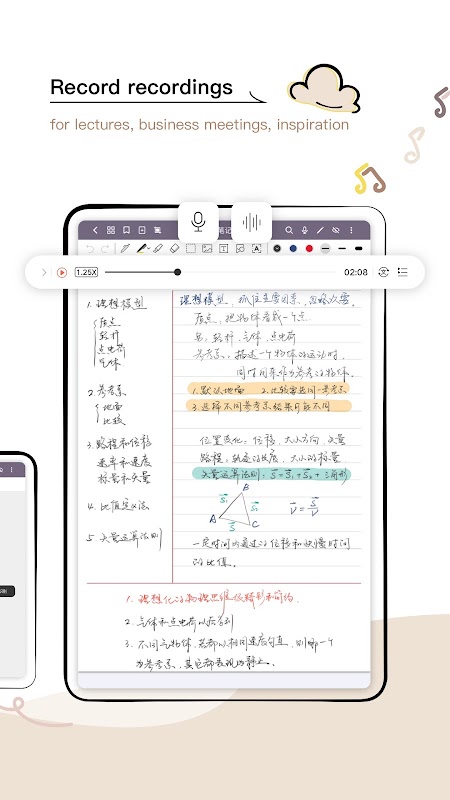 Record recordings
for lectures, business meetings, inspiration
笔记
1.25X
02:08
1. 理想模型
质点
轻杆
点电荷
气体
2. 参考系
地面
比较
3. 路程和位移
速率和速度
标量和矢量
4. 比值定义法
5. 矢量运算法则
理想模型,抓住主要因素,忽略次要.
质点,把物体看成一个点
轻杆、气体、点电荷
参考系,描述一个物体的运动时,
同时间来作为参考的物体.
1. 默认地面 2. 比较需选同一参考系
3. 选择不同参考系结果可能不同
位置变化:位移,大小方向,矢量
路程:轨迹的长度,大小的标量
矢量运算法则:S=S₁+S₂,三角形
B
S₁
S₂
A
S
C
一定时间内通过的位移和快慢时间
的比值.
1. 理想化的物理思维
2. 气体和点电荷
3. 不同
为参考系,其它都表现为静止.